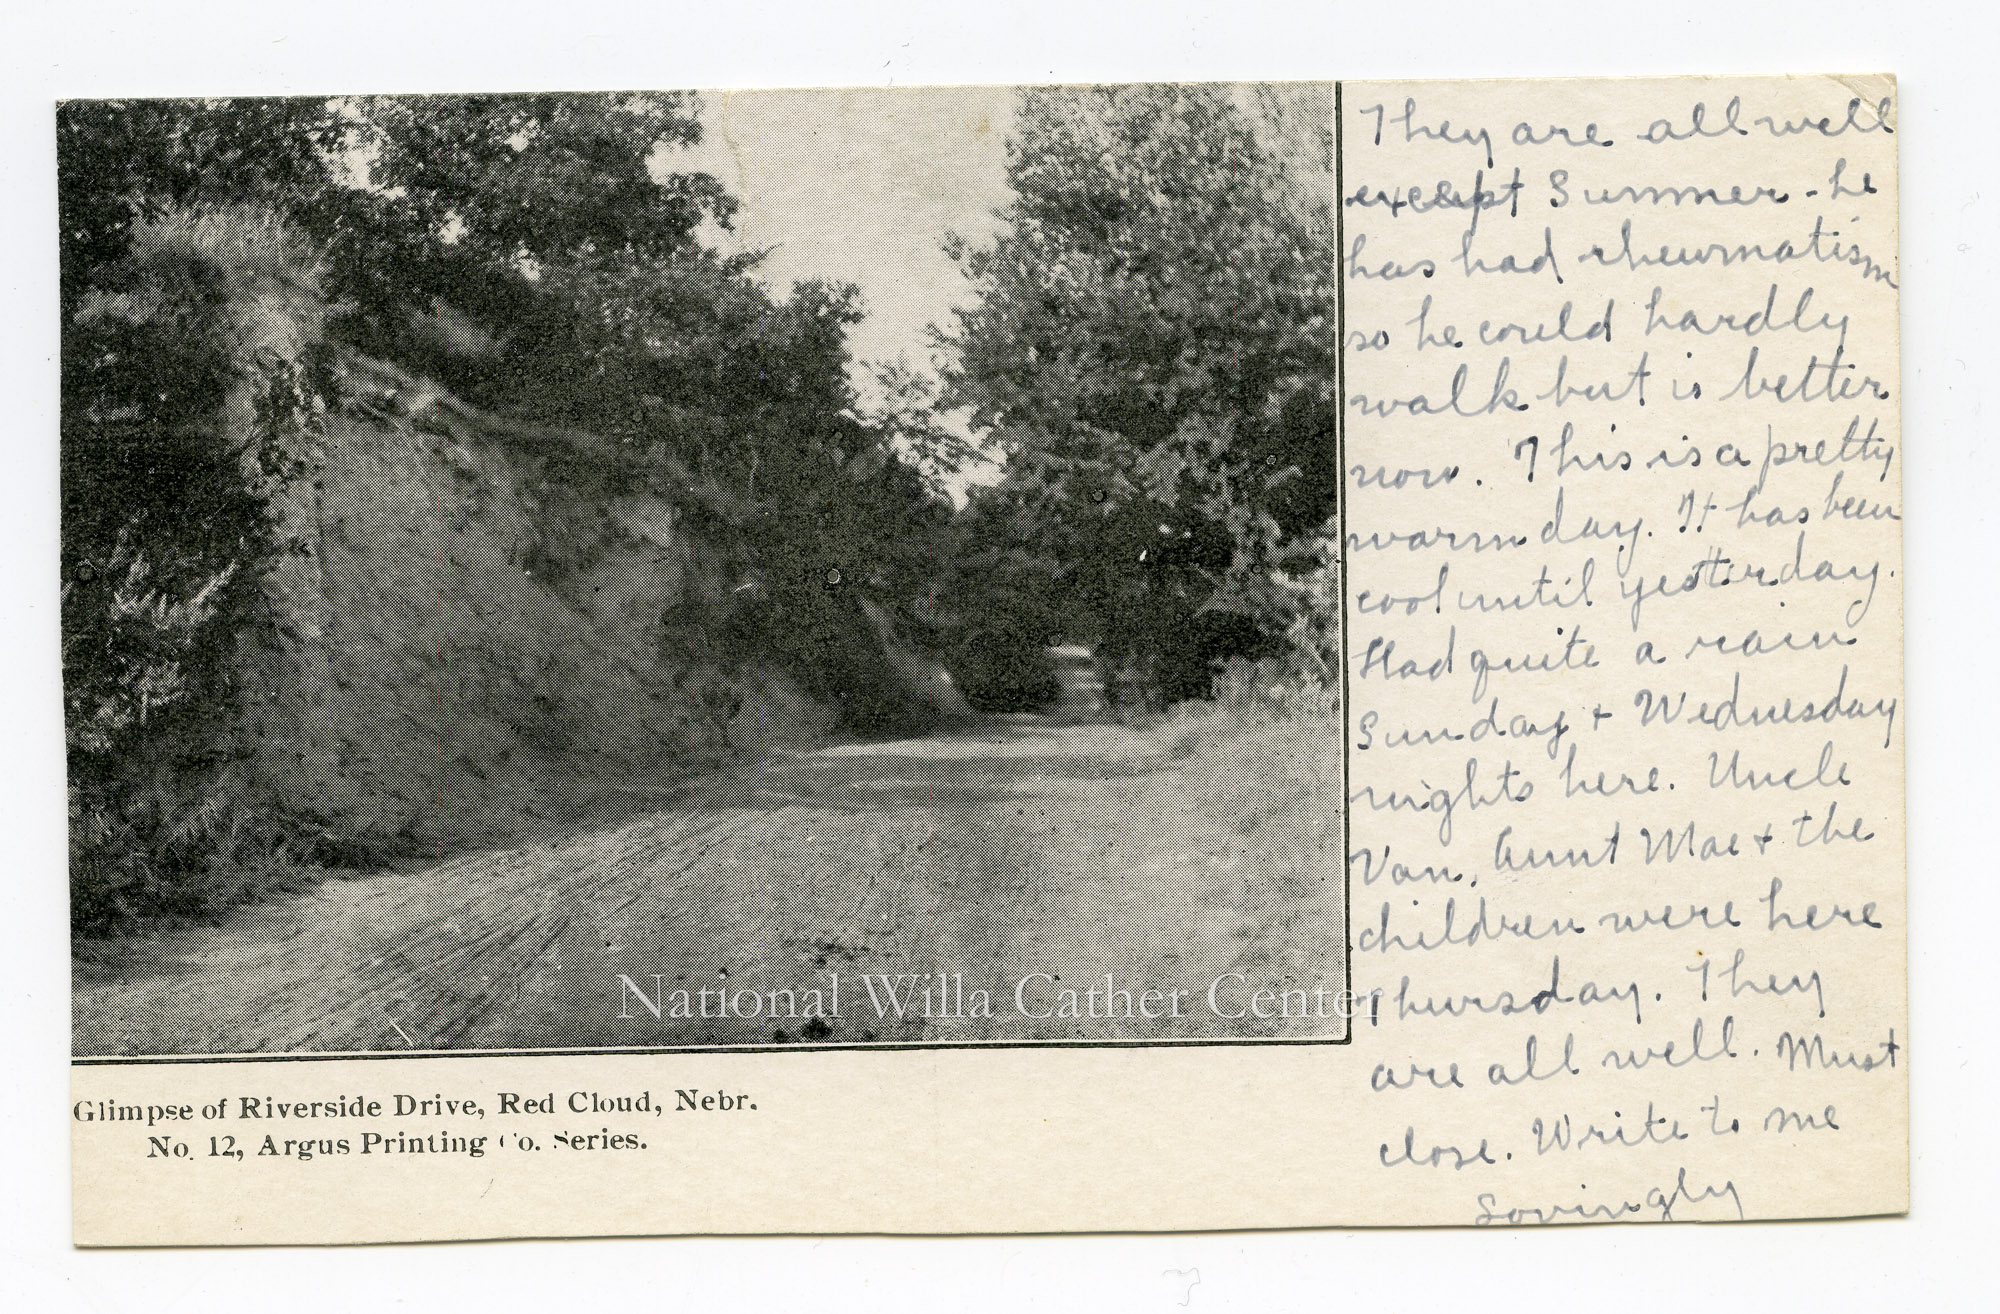 They are all well
except Summer - he
has had rheumatism
so he could hardly
walk but is better
now. This is a pretty
warm day. It has been
cool until yesterday.
Had quite a rain
Sunday + Wednesday
nights here. Uncle
Van, Aunt Mae + the
children were here
Thursday. They
are all well. Must
close. Write to me
Lovingly
National Willa Cather Center
Glimpse of Riverside Drive, Red Cloud, Nebr.
No. 12, Argus Printing Co. Series.